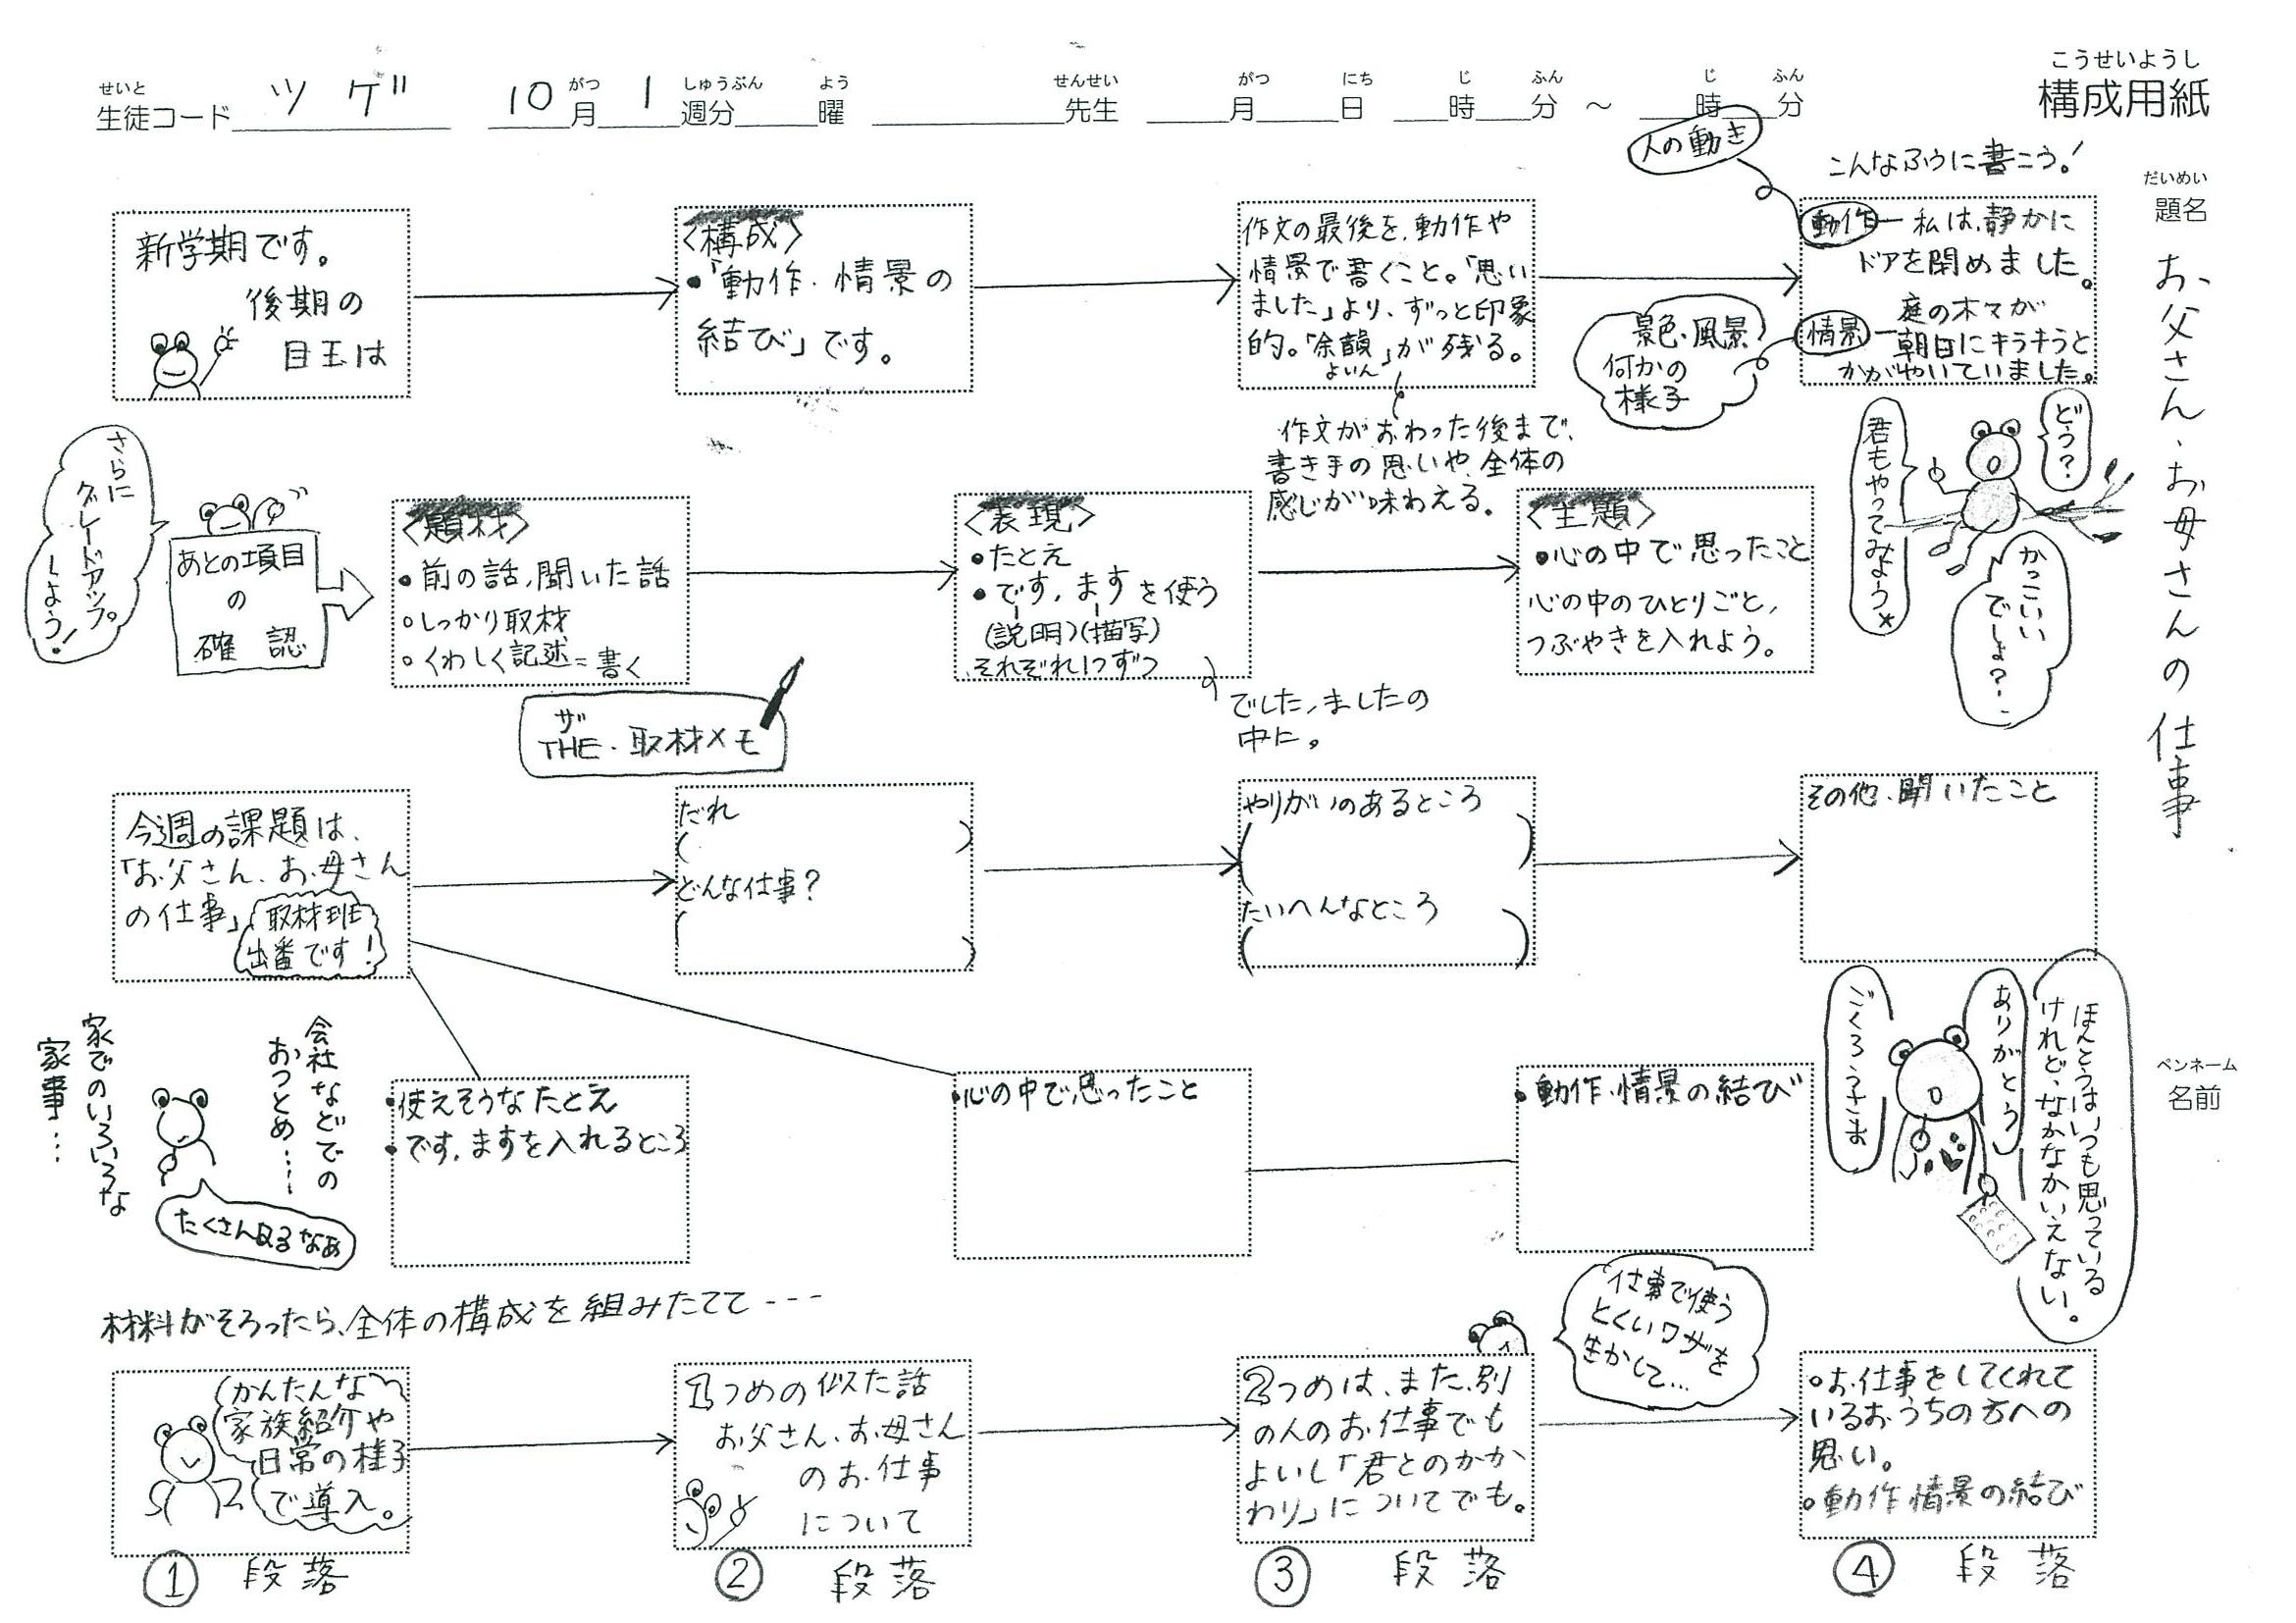 せいと
生徒コード ツゲ 10 がつ 月 1 しゅうぶん 週分 よう 曜 せんせい 先生 がつ 月 にち 日 じ 時 ふん 分 ～ じ 時 ふん 分
こうせいようし
構成用紙
だいめい
題名
お父さん、お母さんの仕事
ペンネーム
名前
新学期です。
後期の
目玉は
〈構成〉
・「動作・情景の
結び」です。
作文の最後を、動作や
情景で書くこと。「思い
ました」より、ずっと印象
的。「余韻」が残る。
よいん
作文がおわった後まで、
書き手の思いや、全体の
感じが味わえる。
人の動き
こんなふうに書こう！
動作ー私は、静かに
ドアを閉めました。
景色・風景
何かの
様子
情景ー庭の木々が
朝日にキラキラと
かがやいていました。
どう？
君もやってみよう
かっこいい
でしょ？
さらに
グレードアップ
しよう！
あとの項目
の
確認
〈題材〉
・前の話、聞いた話
○しっかり取材
○くわしく記述＝書く
ザ
THE・取材メモ
〈表現〉
・たとえ
・です，ますを使う
(説明)(描写)
それぞれ1つずつ
でした，ましたの
中に。
〈主題〉
・心の中で思ったこと
心の中のひとりごと，
つぶやきを入れよう。
今週の課題は、
「お父さん、お母さん
の仕事」
取材班
出番です！
だれ
( )
どんな仕事？
( )
やりがいのあるところ
( )
たいへんなところ
( )
その他、聞いたこと
会社などでの
おつとめ……
家でのいろいろな
家事…
たくさんあるなあ
・使えそうなたとえ
・です，ますを入れるところ
・心の中で思ったこと
・動作・情景の結び
ほんとうはいつも思っている
けれど、なかなかいえない。
ありがとう
ごくろうさま
材料がそろったら、全体の構成を組みたてて---
かんたんな
家族紹介や
日常の様子
で導入。
①段落
1つめの似た話
お父さん、お母さん
のお仕事
について
②段落
2つめは、また、別
の人のお仕事でも
よいし「君とのかか
わり」についてでも。
③段落
仕事で使う
とくいワザを
生かして…
○お仕事をしてくれて
いるおうちの方への
思い。
○動作情景の結び
④段落